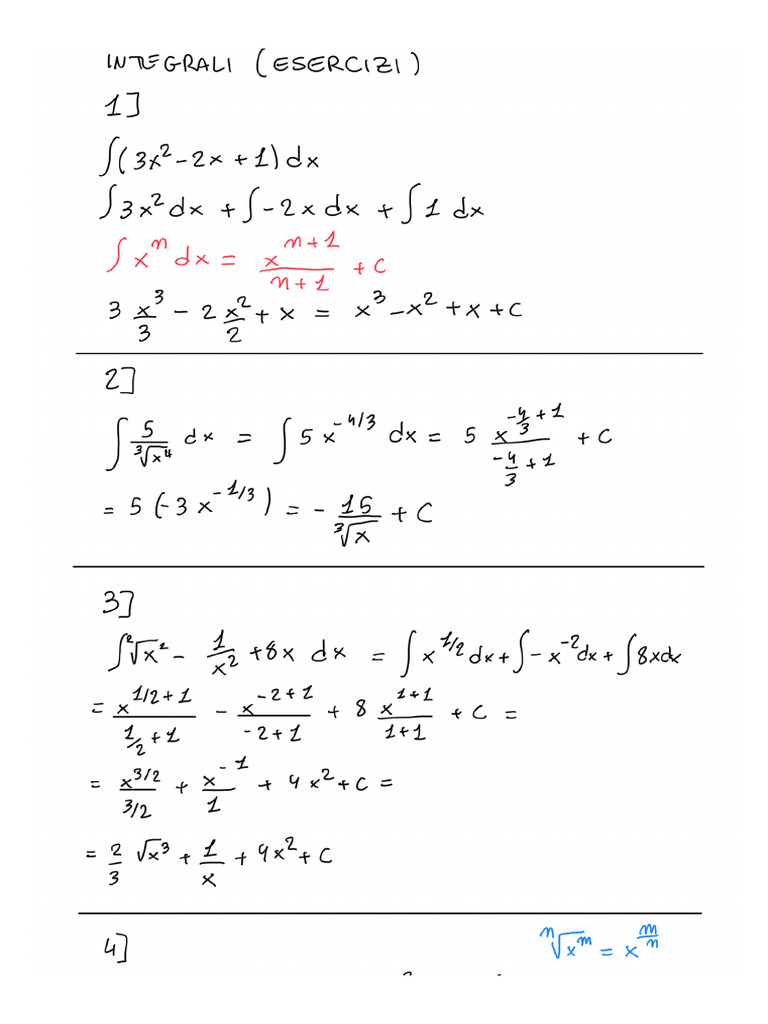 INTEGRALI (ESERCIZI)
1]
∫(3x² - 2x + 1) dx
∫3x² dx + ∫-2x dx + ∫1 dx
∫xⁿ dx = x^(n+1)/(n+1) + C
3 x³/3 - 2 x²/2 + x = x³ - x² + x + C
2]
∫ 5/∛x⁴ dx = ∫ 5x^(-4/3) dx = 5 x^(-4/3 + 1)/(-4/3 + 1) + C
= 5(-3x^(-1/3)) = - 15/∛x + C
3]
∫ ²√x² - 1/x² + 8x dx = ∫ x^(1/2) dx + ∫ -x^(-2) dx + ∫ 8x dx
= x^(1/2+1)/(1/2+1) - x^(-2+1)/(-2+1) + 8 x^(1+1)/(1+1) + C =
= x^(3/2)/(3/2) + x^(-1)/1 + 4x² + C =
= 2/3 √x³ + 1/x + 4x² + C
4]
ⁿ√x^m = x^(m/n)